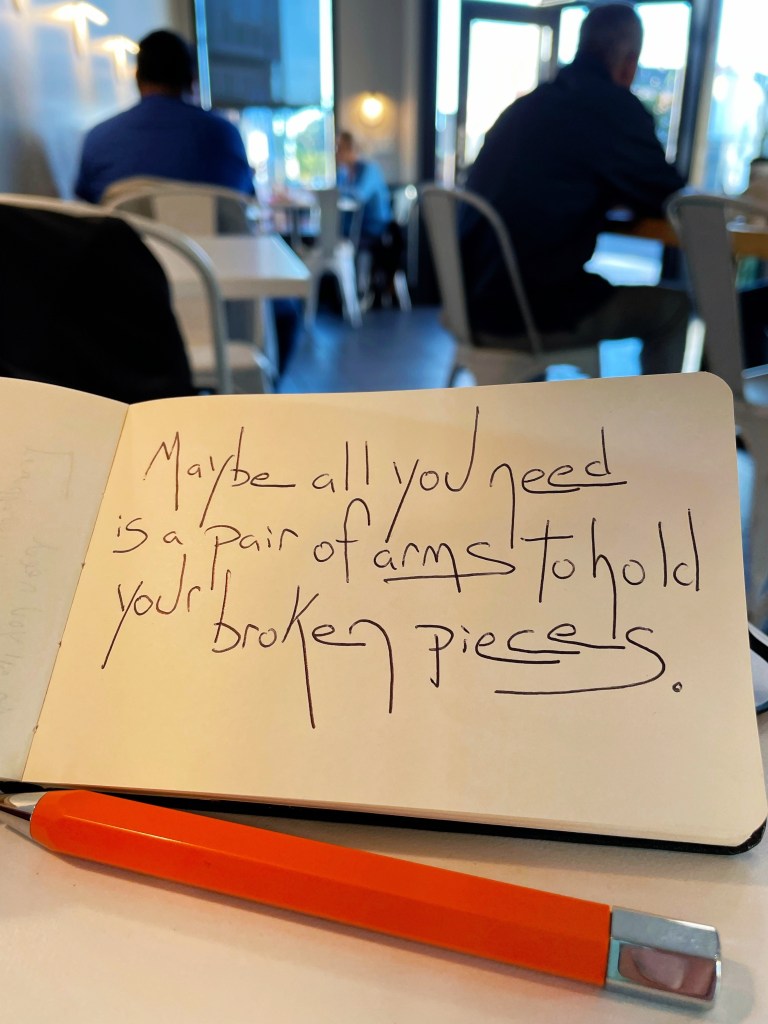 Maybe all you need
is a pair of arms to hold
your broken pieces.